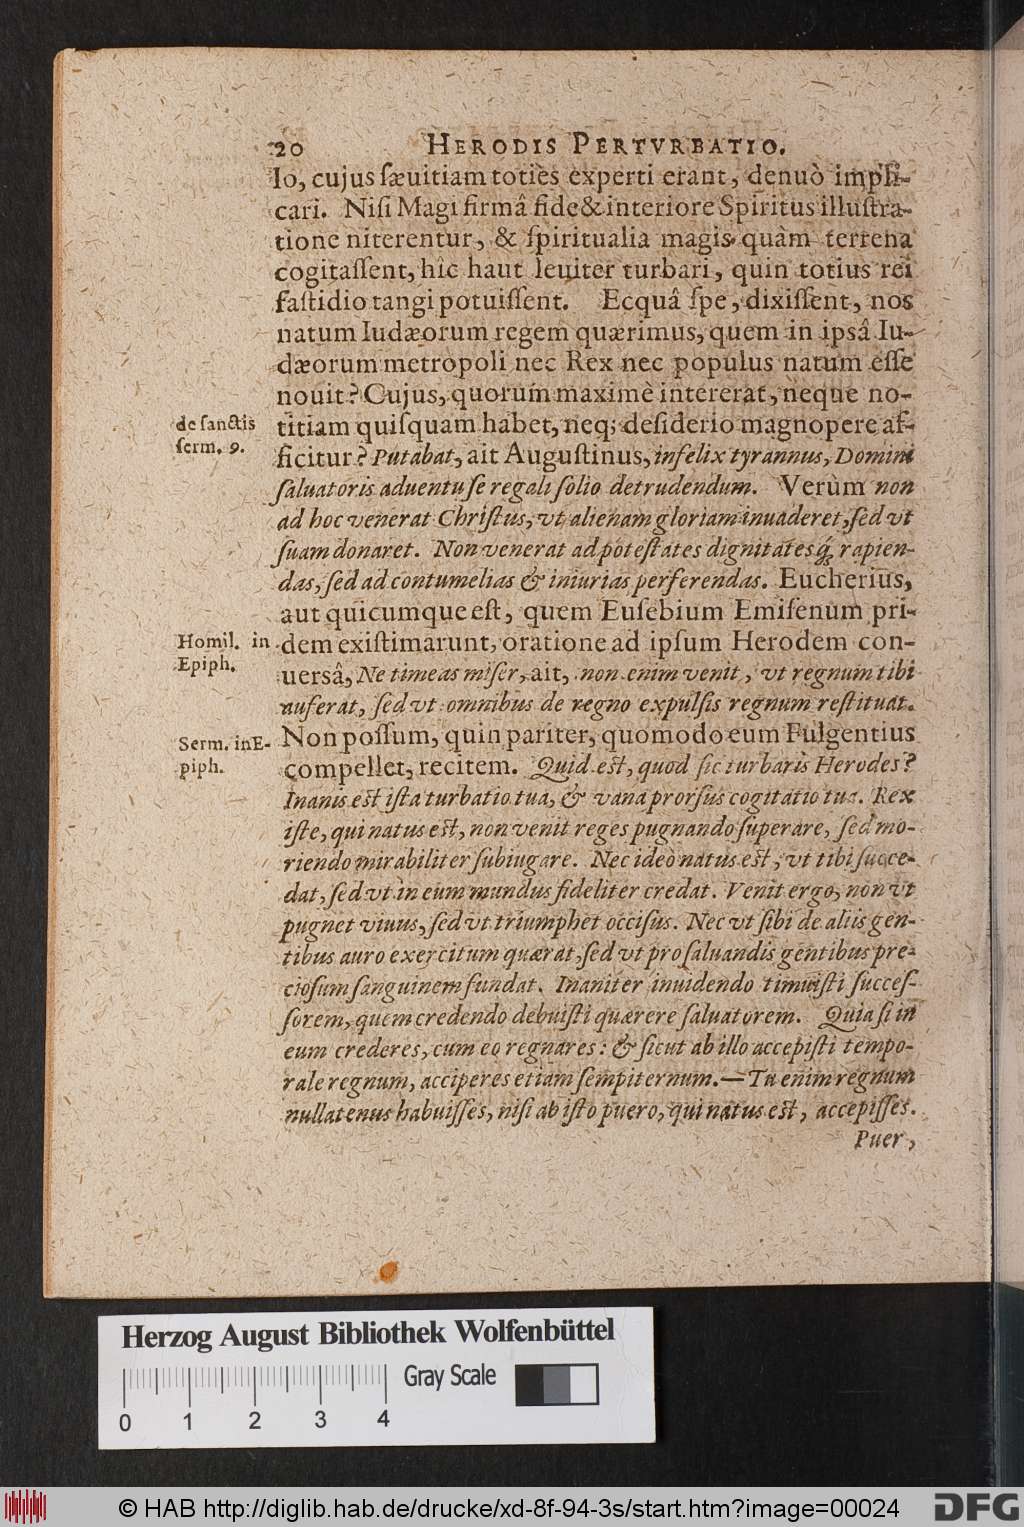 20 HERODIS PERTVRBATIO.
lo, cujus ſæuitiam toties experti erant, denuò impli-
cari. Niſi Magi firmâ fide & interiore Spiritus illuſtra-
tione niterentur, & ſpiritualia magis quàm terrena
cogitaſſent, hîc haut leuiter turbari, quin totius rei
faſtidio tangi potuiſſent. Ecquâ ſpe, dixiſſent, nos
natum Iudæorum regem quærimus, quem in ipsâ Iu-
dæorum metropoli nec Rex nec populus natum eſſe
nouit? Cujus, quorum maximè intererat, neque no-
de ſanctis
ſerm. 9.
titiam quiſquam habet, neq; deſiderio magnopere af-
ficitur? Putabat, ait Auguſtinus, infelix tyrannus, Domini
ſaluatoris aduentu ſe regali ſolio detrudendum. Verùm non
ad hoc venerat Chriſtus, vt alienam gloriam inuaderet, ſed vt
ſuam donaret. Non venerat ad poteſtates dignitatesq́; rapien-
das, ſed ad contumelias & iniurias perferendas. Eucherius,
aut quicumque eſt, quem Euſebium Emiſenum pri-
Homil. in
Epiph.
dem exiſtimarunt, oratione ad ipſum Herodem con-
uersâ, Ne timeas miſer, ait, non enim venit, vt regnum tibi
auferat, ſed vt omnibus de regno expulſis regnum reſtituat.
Serm. in E-
piph.
Non poſſum, quin pariter, quomodo eum Fulgentius
compellet, recitem. Quid eſt, quod ſic turbaris Herodes?
Inanis eſt iſta turbatio tua, & vana prorſus cogitatio tua. Rex
iſte, qui natus eſt, non venit reges pugnando ſuperare, ſed mo-
riendo mirabiliter ſubiugare. Nec ideò natus eſt, vt tibi ſucce-
dat, ſed vt in eum mundus fideliter credat. Venit ergo, non vt
pugnet viuus, ſed vt triumphet occiſus. Nec vt ſibi de aliis gen-
tibus auro exercitum quærat, ſed vt pro ſaluandis gentibus pre-
cioſum ſanguinem fundat. Inaniter inuidendo timuiſti ſucceſ-
ſorem, quem credendo debuiſti quærere ſaluatorem. Quia ſi in
eum crederes, cum eo regnares: & ſicut ab illo accepiſti tempo-
rale regnum, acciperes etiam ſempiternum.— Tu enim regnum
nullatenus habuiſſes, niſi ab iſto puero, qui natus eſt, accepiſſes.
Puer,
Herzog August Bibliothek Wolfenbüttel
Gray Scale
0 1 2 3 4
© HAB http://diglib.hab.de/drucke/xd-8f-94-3s/start.htm?image=00024
DFG